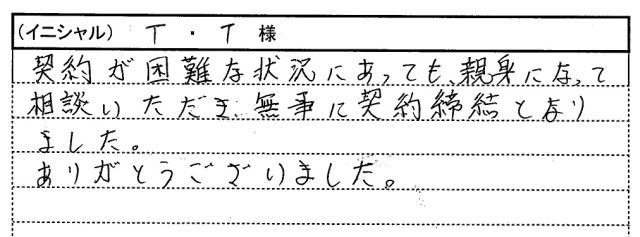 (イニシャル) T ・ T 様
契約が困難な状況にあっても、親身になって
相談いただき、無事に契約締結となり
ました。
ありがとうございました。